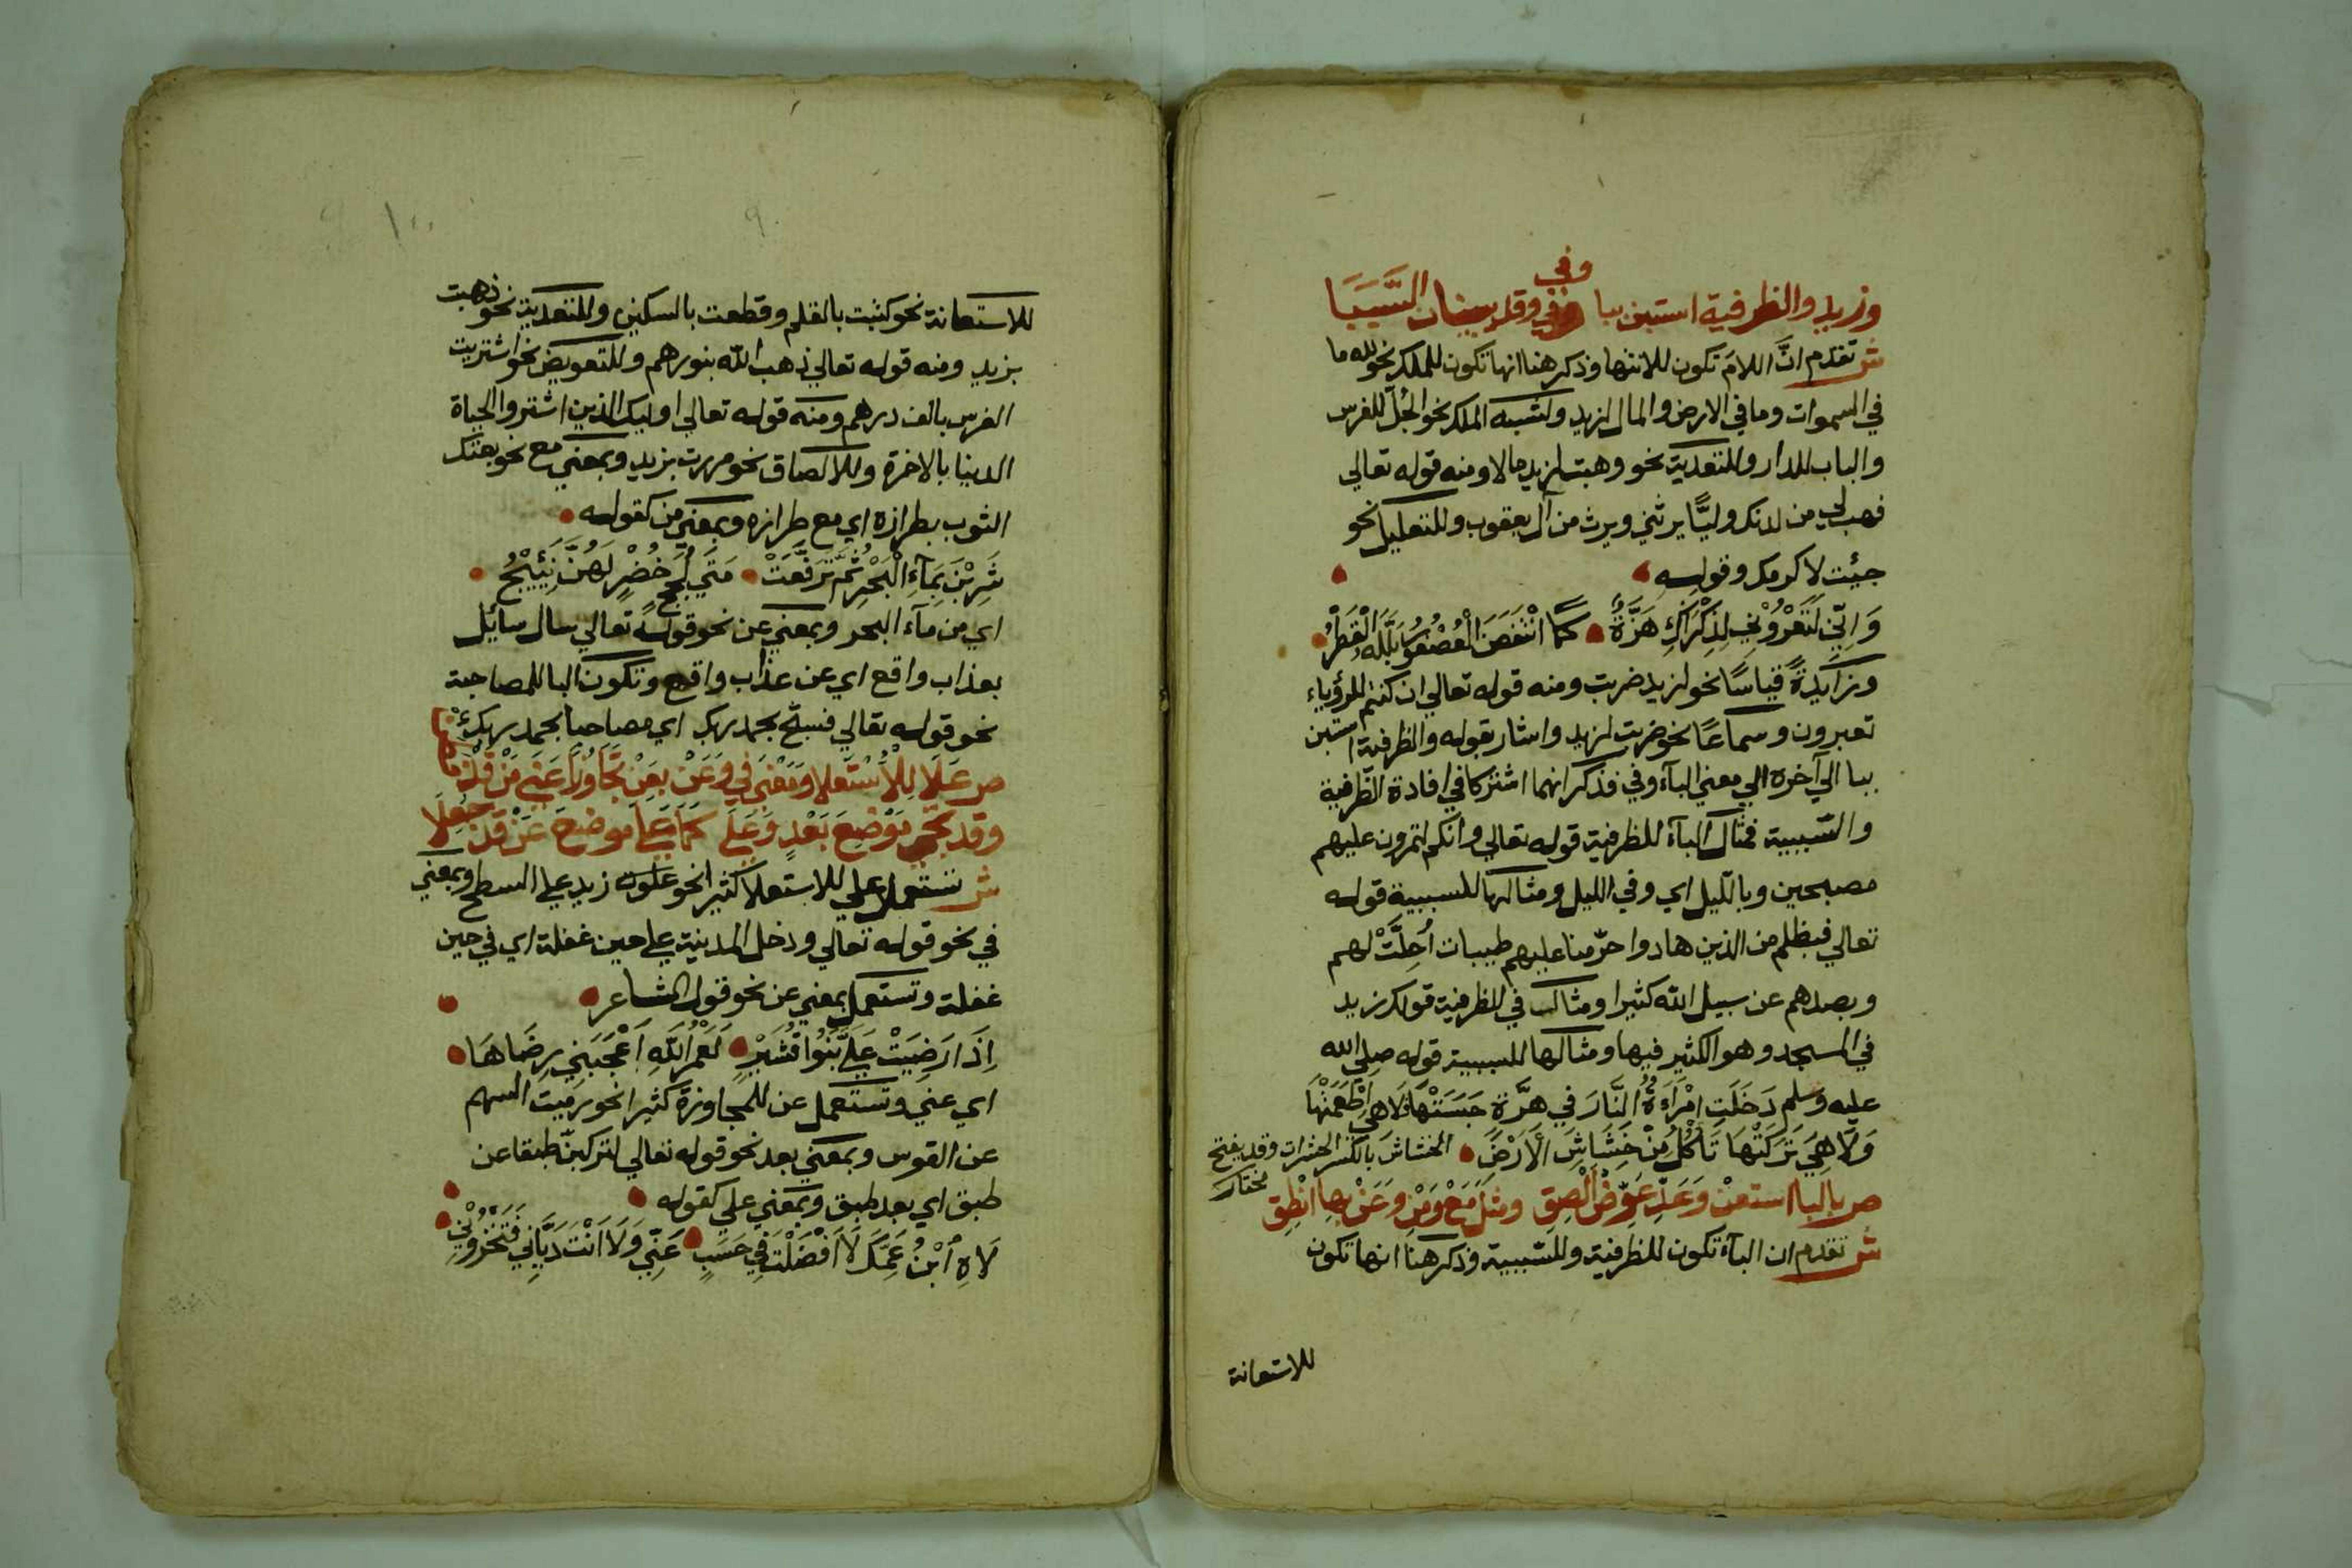 وزيد والظرفية استبن ببا وفي وقد يبينان السببا
ش تقدم انّ اللامَ تكون للانتها وذكر هنا انها تكون للملك نحو لله ما
في السموات وما في الارض والمال لزيد ولشبه الملك نحو الجُلّ للفرس
والباب للدار وللتعدية نحو وهبت لزيد مالا ومنه قوله تعالي
فهب لي من لدنك وليًّا يرثني ويرث من آل يعقوب وللتعليل نحو
جيئت لاكرمك وقوله
وَاِنِّي لَتَعْرُوْنِي لِذِكْرَاكِ هَزَّةٌ كما انْتَفَضَ الْعُصْفُوْرُ بَلَّلَهُ الْقَطْرُ
وزايدةً قياسًا نحو لزيد ضربت ومنه قوله تعالي ان كنتم للرؤياء
تعبرون وسماعًا نحو ضربت لزيد واشار بقوله والظرفية استبن
ببا الي آخره الي معني البآء وفي فذكر انهما اشتركا في افادة الظّرفية
والسّببية فمثال البآء للظرفية قوله تعالي وانّكم لتمرون عليهم
مصبحين وبالّليل اي وفي الليل ومثالها للسببية قوله
تعالي فبظلم من الذين هادوا حرّمنا عليهم طيبات أُحِلَّتْ لهم
وبصدهم عن سبيل الله كثيرا ومثال في للظرفية قولك زيد
في المسجد وهو الكثير فيها ومثالها للسببية قوله صلي الله
عليه وسلم دَخَلَتِ امْرَاَةٌ النَّارَ فِي هِرَّةٍ حَبَسَتْهَا فَلَا هِي اَطْعَمَتْهَا
وَلَا هِيَ تَرَكَتْهَا تَأْكُلُ مِنْ خَشَاشِ الْاَرْضِ الخشاش بالكسر الحشرات وقد يفتح
مختار
ص بالبا استعنْ وَعَدِّ عَوِّضْ اَلْصِقِ ومثلَ مَعْ وَمِنْ وَعَنْ بها انْطِقِ
ش تقدم ان البآء تكون للظرفية وللسّببية وذكر هنا انها تكون
للاستعانة
للاستعانة نحو كتبت بالقلم وقطعت بالسكين وللتعدية نحو ذهبت
بزيد ومنه قوله تعالي ذهب الله بنورهم وللتعويض نحو اشتريت
الفرس بالف درهم ومنه قوله تعالي اوليك الذين اشتروا الحياة
الدينا بالاخرة وللالصاق نحو مررت بزيد وبمعني مع نحو بعتك
الثوب بطرازه اي مع طرازه وبمعني من كقوله
شَرِبْنَ بِمَآءِ الْبَحْرِ ثُمَّ تَرَفَّعَتْ مَتَي لُجَجٍ خُضْرٍ لَهُنَّ نَئِيْجُ
اي من مآء البحر وبمعني عن نحو قوله تعالي سال سائل
بعذاب واقع اي عن عذاب واقع وتكون البا للمصاحبة
نحو قوله تعالي فسبّح بحمد ربك اي مصاحبا بحمد ربك
ص عَلَا لِلْاُسْتعلا وَمَعْنَي فِي وَعَنْ بِعَنْ تَجَاوُزًا عَنَي مَنْ قَدْ
وقد تجي مَوْضِعَ بَعْدٍ وَعَلَي كَمَا عَلَا موضعَ عَنْ قَدْ جُعِلَا
ش تستعمل علي للاستعلا كثيرا نحو علوت زيد علي السطح وبمعني
في نحو قوله تعالي ودخل المدينة علي حين غفلة اي في حين
غفلة وتستعمل بمعني عن نحو قول الشاعر
اِذَا رَضِيَتْ عَلَيَّ بَنُوا قُشَيْرٍ لَعَمْرُ اللَّهِ اَعْجَبَنِي رِضَاهَا
اي عني وتستعمل عن للمجاوزة كثيرا نحو رميت السهم
عن القوس وبمعني بعد نحو قوله تعالي لتركبنّ طبقا عن
طبق اي بعد طبق وبمعني علي كقوله
لَاهِ اُبْنُ عَمِّكَ لَا اَفْضَلْتَ فِي حَسَبٍ عَنِّي وَلَا اَنْتَ دَيَّانِي فَتَخْزُوْنِي